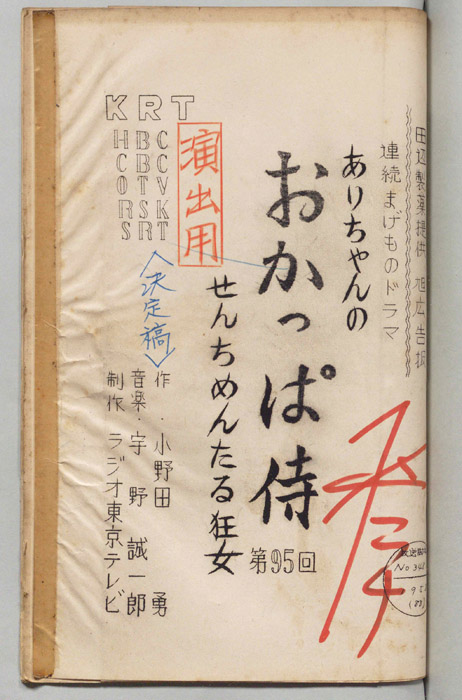 田辺製薬提供 旭広告扱
連続まげものドラマ
ありちゃんの
おかっぱ侍
第95回
せんちめんたる狂女
演出用
<決定稿>
作・小野田 勇
音楽・宇野 誠一郎
制作 ラジオ東京テレビ
KRT
HBC
CBC
OTV
RSK
SRT